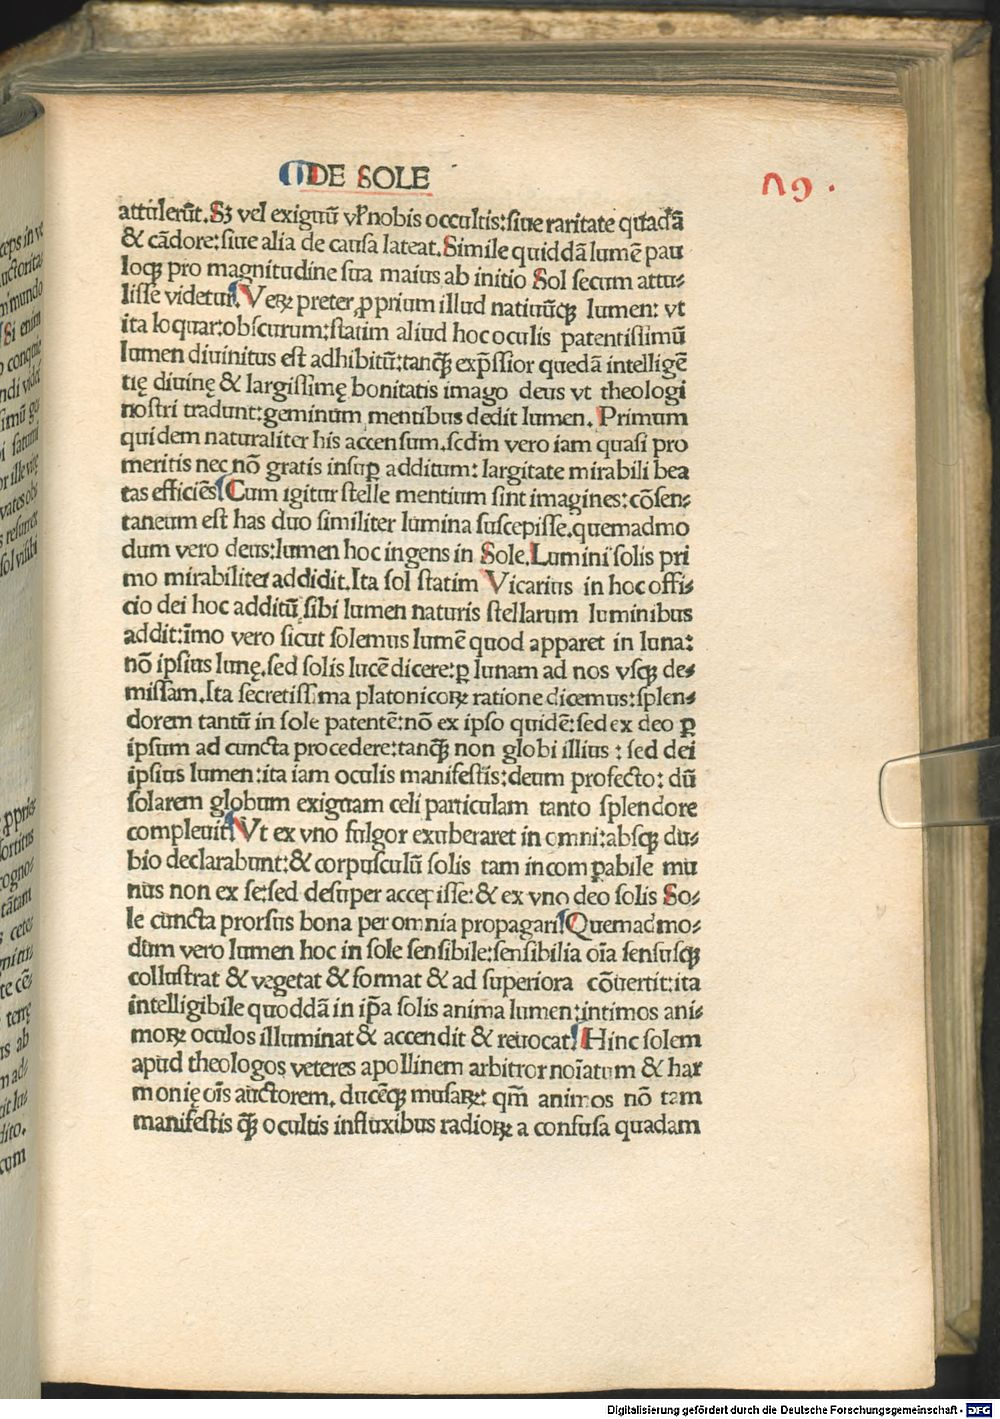 DE SOLE
ꝯ.
attulerūt.Sꝫ vel exiguū vl̕ nobis occultis:siue raritate quadā
& cādore:siue alia de causa lateat.Simile quiddā lumē pau
loqꝫ pro magnitudine sua maius ab initio Sol secum attu⸗
lisse videtur. Veꝝ preter ꝓprium illud natiuūqꝫ lumen: vt
ita loquar:obscurum:statim aliud hoc oculis patentissimū
lumen diuinitus est adhibitū:tanqꝫ exp̄ssior quedā intelligē
tię diuinę & largissimę bonitatis imago deus vt theologi
nostri tradunt:geminum mentibus dedit lumen. Primum
quidem naturaliter his accensum.scd̄m vero iam quasi pro
meritis nec nō gratis insuꝑ additum: largitate mirabili bea
tas efficiēs Cum igitur stelle mentium sint imagines:cōsen⸗
taneum est has duo similiter lumina suscepisse.quemadmo
dum vero deus:lumen hoc ingens in Sole.Lumini solis pri
mo mirabiliter addidit.Ita sol statim Vicarius in hoc offi⸗
cio dei hoc additū sibi lumen naturis stellarum luminibus
addit:īmo vero sicut solemus lumē quod apparet in luna:
nō ipsius lunę.sed solis lucē dicere:ꝑ lunam ad nos vsqꝫ de⸗
missam.Ita secretissima platonicoꝝ ratione dicemus:splen⸗
dorem tantū in sole patentē:nō ex ipso quidē:sed ex deo ꝑ
ipsum ad cuncta procedere:tanqꝫ non globi illius : sed dei
ipsius lumen:ita iam oculis manifestis:deum profecto: dū
solarem globum exiguam celi particulam tanto splendore
compleuit Vt ex vno fulgor exuberaret in omni:absqꝫ du⸗
bio declarabunt:& corpusculū solis tam incomꝑabile mu
nus non ex se:sed desuper accepisse:& ex vno deo solis So⸗
le cuncta prorsus bona per omnia propagari Quemadmo⸗
dum vero lumen hoc in sole sensibile:sensibilia oīa sensusqꝫ
collustrat & vegetat & format & ad superiora cōuertit:ita
intelligibile quoddā in ip̄a solis anima lumen:intimos ani⸗
moꝝ oculos illuminat & accendit & reuocat Hinc solem
apud theologos veteres apollinem arbitror noīatum & har
monię oīs auctorem. ducēqꝫ musaꝝ: qm̄ animos nō tam
manifestis qꝫ ocultis influxibus radioꝝ a confusa quadam
Digitalisierung gefördert durch die Deutsche Forschungsgemeinschaft - DFG